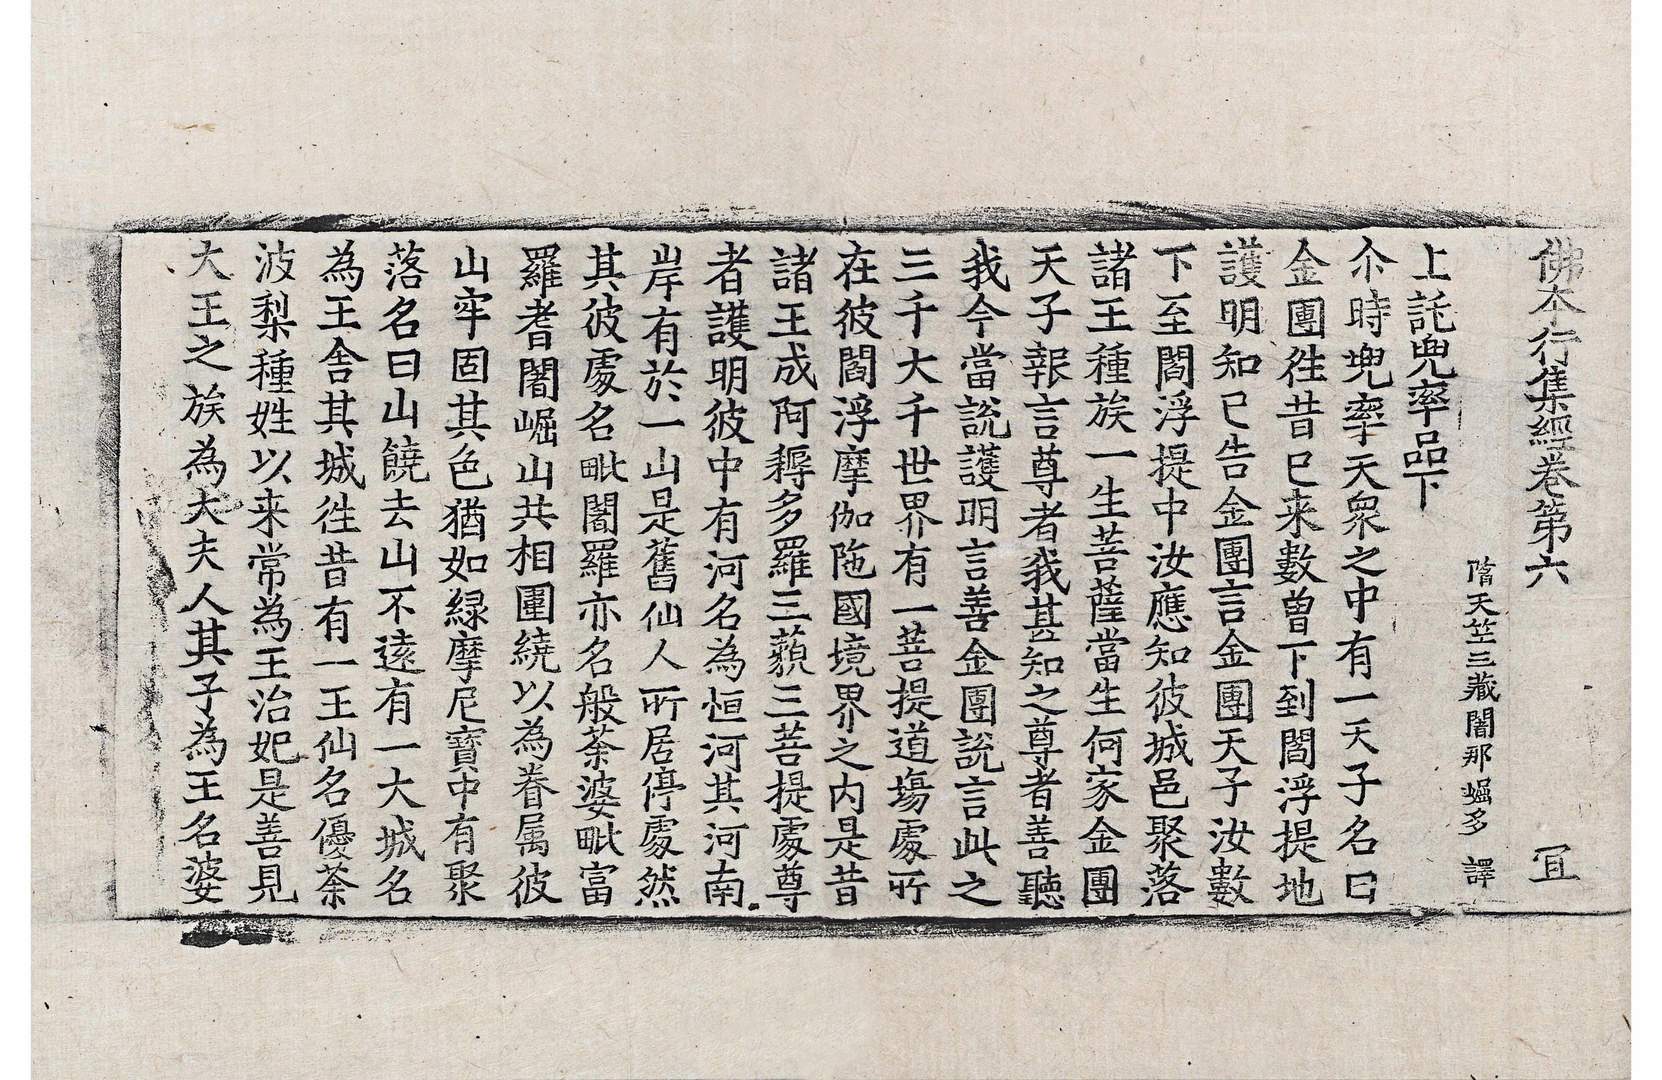 佛本行集經卷第六 冝
隋天竺三藏闍那崛多 譯
上託兜率品下
尒時兠率天衆之中有一天子名曰
金團徃昔已来數曾下到閻浮提地
護明知已告金團言金團天子汝數
下至閻浮提中汝應知彼城邑聚落
諸王種族一生菩薩當生何家金團
天子報言尊者我甚知之尊者善聽
我今當說護明言善金團說言此之
三千大千世界有一菩提道塲處所
在彼閻浮摩伽陁國境界之内是昔
諸王成阿耨多羅三藐三菩提處尊
者護明彼中有河名為恒河其河南
岸有於一山是舊仙人所居停處然
其彼處名毗闍羅亦名般荼婆毗富
羅耆闍崛山共相圍繞以為眷属彼
山牢固其色猶如綠摩尼寶中有聚
落名曰山饒去山不遠有一大城名
為王舎其城徃昔有一王仙名優荼
波梨種姓以来常為王治妃是善見
大王之族為大夫人其子為王名婆